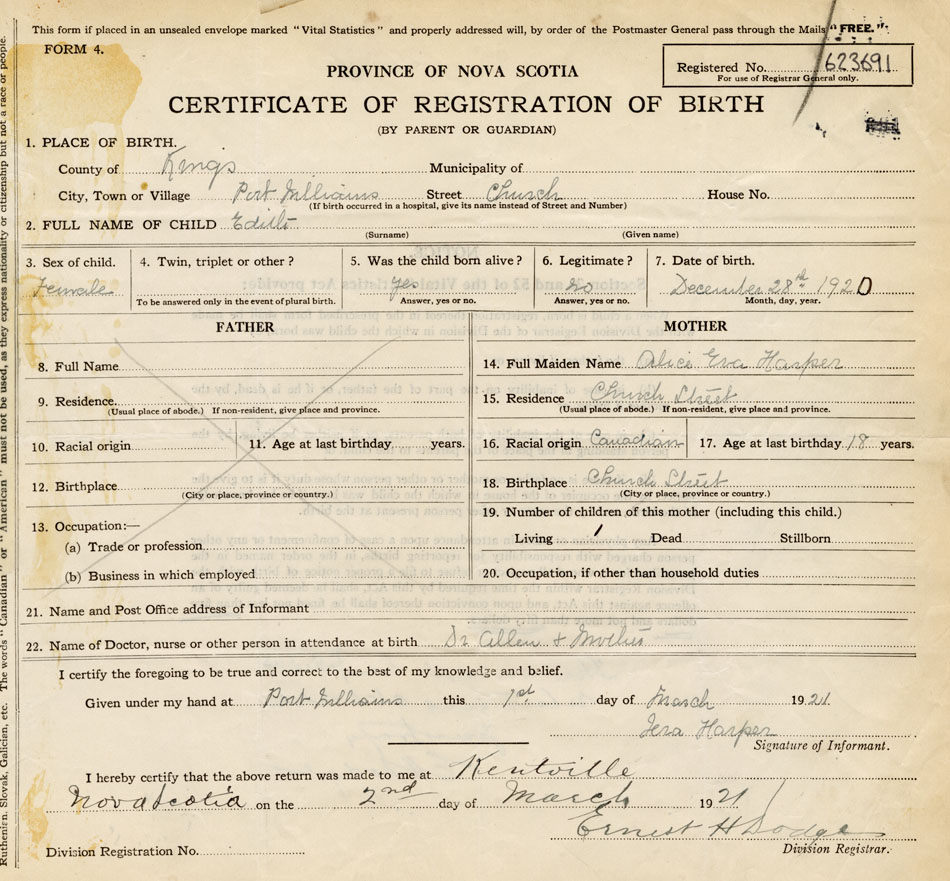 This form if placed in an unsealed envelope marked "Vital Statistics" and properly addressed will, by order of the Postmaster General pass through the Mails "FREE."
FORM 4.
Registered No. 623691
For use of Registrar General only.
PROVINCE OF NOVA SCOTIA
CERTIFICATE OF REGISTRATION OF BIRTH
(BY PARENT OR GUARDIAN)
1. PLACE OF BIRTH.
County of Kings Municipality of
City, Town or Village Port Williams Street Church House No.
(If birth occurred in a hospital, give its name instead of Street and Number)
2. FULL NAME OF CHILD Edith
(Surname) (Given name)
3. Sex of child. 4. Twin, triplet or other? 5. Was the child born alive? 6. Legitimate? 7. Date of birth.
Female yes no December 28th 1920
To be answered only in the event of plural birth. Answer, yes or no. Answer, yes or no. Month, day, year.
FATHER
8. Full Name
9. Residence
(Usual place of abode.) If non-resident, give place and province.
10. Racial origin 11. Age at last birthday years.
12. Birthplace
(City or place, province or country.)
13. Occupation:—
(a) Trade or profession
(b) Business in which employed
MOTHER
14. Full Maiden Name Alice Eva Harper
15. Residence Church Street
(Usual place of abode.) If non-resident, give place and province.
16. Racial origin Canadian 17. Age at last birthday 18 years.
18. Birthplace Church Street
(City or place, province or country.)
19. Number of children of this mother (including this child.)
Living 1 Dead Stillborn
20. Occupation, if other than household duties
21. Name and Post Office address of Informant
22. Name of Doctor, nurse or other person in attendance at birth Dr Allen + Mother
I certify the foregoing to be true and correct to the best of my knowledge and belief.
Given under my hand at Port Williams this 1st day of March 1921.
Harper
Signature of Informant.
I hereby certify that the above return was made to me at Kentville
Nova Scotia on the 2nd day of March 1921
Ernest H Dodge
Division Registrar.
Division Registration No.
Ruthenian, Slovak, Galician, etc. The words "Canadian" or "American" must not be used, as they express nationality or citizenship but not a race or people.